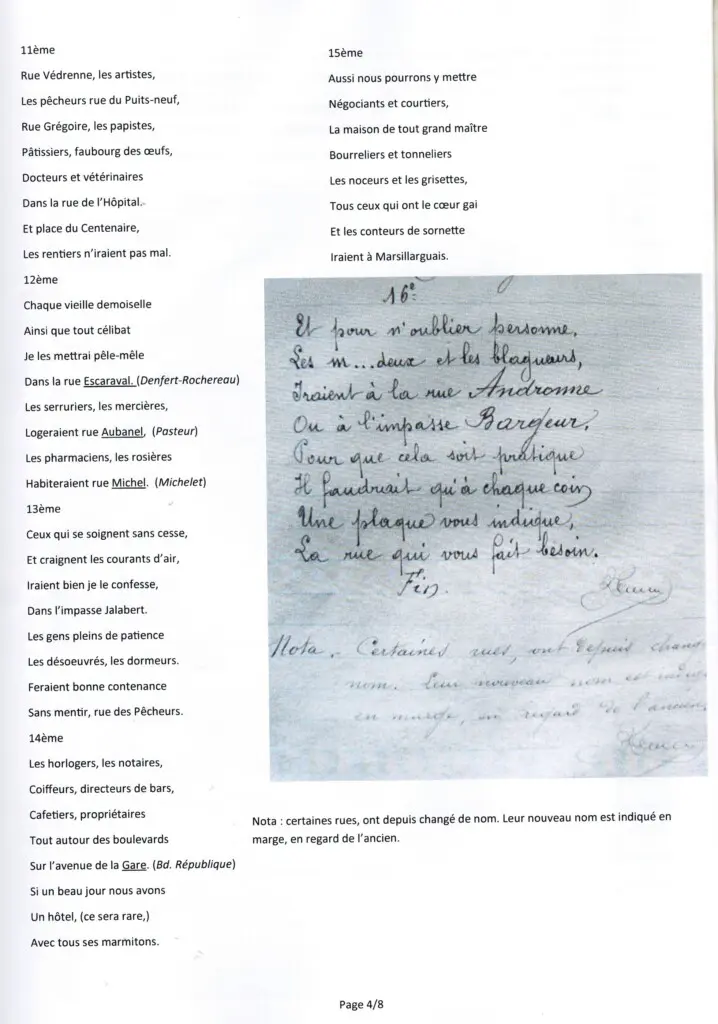 11ème
Rue Védrenne, les artistes,
Les pêcheurs rue du Puits-neuf,
Rue Grégoire, les papistes,
Pâtissiers, faubourg des œufs,
Docteurs et vétérinaires
Dans la rue de l'Hôpital.
Et place du Centenaire,
Les rentiers n'iraient pas mal.
12ème
Chaque vieille demoiselle
Ainsi que tout célibat
Je les mettrai pêle-mêle
Dans la rue Escaraval. (Denfert-Rochereau)
Les serruriers, les mercières,
Logeraient rue Aubanel, (Pasteur)
Les pharmaciens, les rosières
Habiteraient rue Michel. (Michelet)
13ème
Ceux qui se soignent sans cesse,
Et craignent les courants d'air,
Iraient bien je le confesse,
Dans l'impasse Jalabert.
Les gens pleins de patience
Les désoeuvrés, les dormeurs.
Feraient bonne contenance
Sans mentir, rue des Pêcheurs.
14ème
Les horlogers, les notaires,
Coiffeurs, directeurs de bars,
Cafetiers, propriétaires
Tout autour des boulevards
Sur l'avenue de la Gare. (Bd. République)
Si un beau jour nous avons
Un hôtel, (ce sera rare,)
Avec tous ses marmitons.
15ème
Aussi nous pourrons y mettre
Négociants et courtiers,
La maison de tout grand maître
Bourreliers et tonneliers
Les noceurs et les grisettes,
Tous ceux qui ont le cœur gai
Et les conteurs de sornette
Iraient à Marsillarguais.
16e:
Et pour n'oublier personne,
Les m...deux et les blagueurs,
Iraient à la rue Andronne
Ou à l'impasse Bargeur,
Pour que cela soit pratique
Il faudrait qu'à chaque coin
Une plaque vous indique,
La rue qui vous fait besoin.
Fin.
Nota. - Certaines rues, ont depuis chang
nom. Leur nouveau nom est
en marge, en regard de l'ancien,
Nota : certaines rues, ont depuis changé de nom. Leur nouveau nom est indiqué en
marge, en regard de l'ancien.
Page 4/8